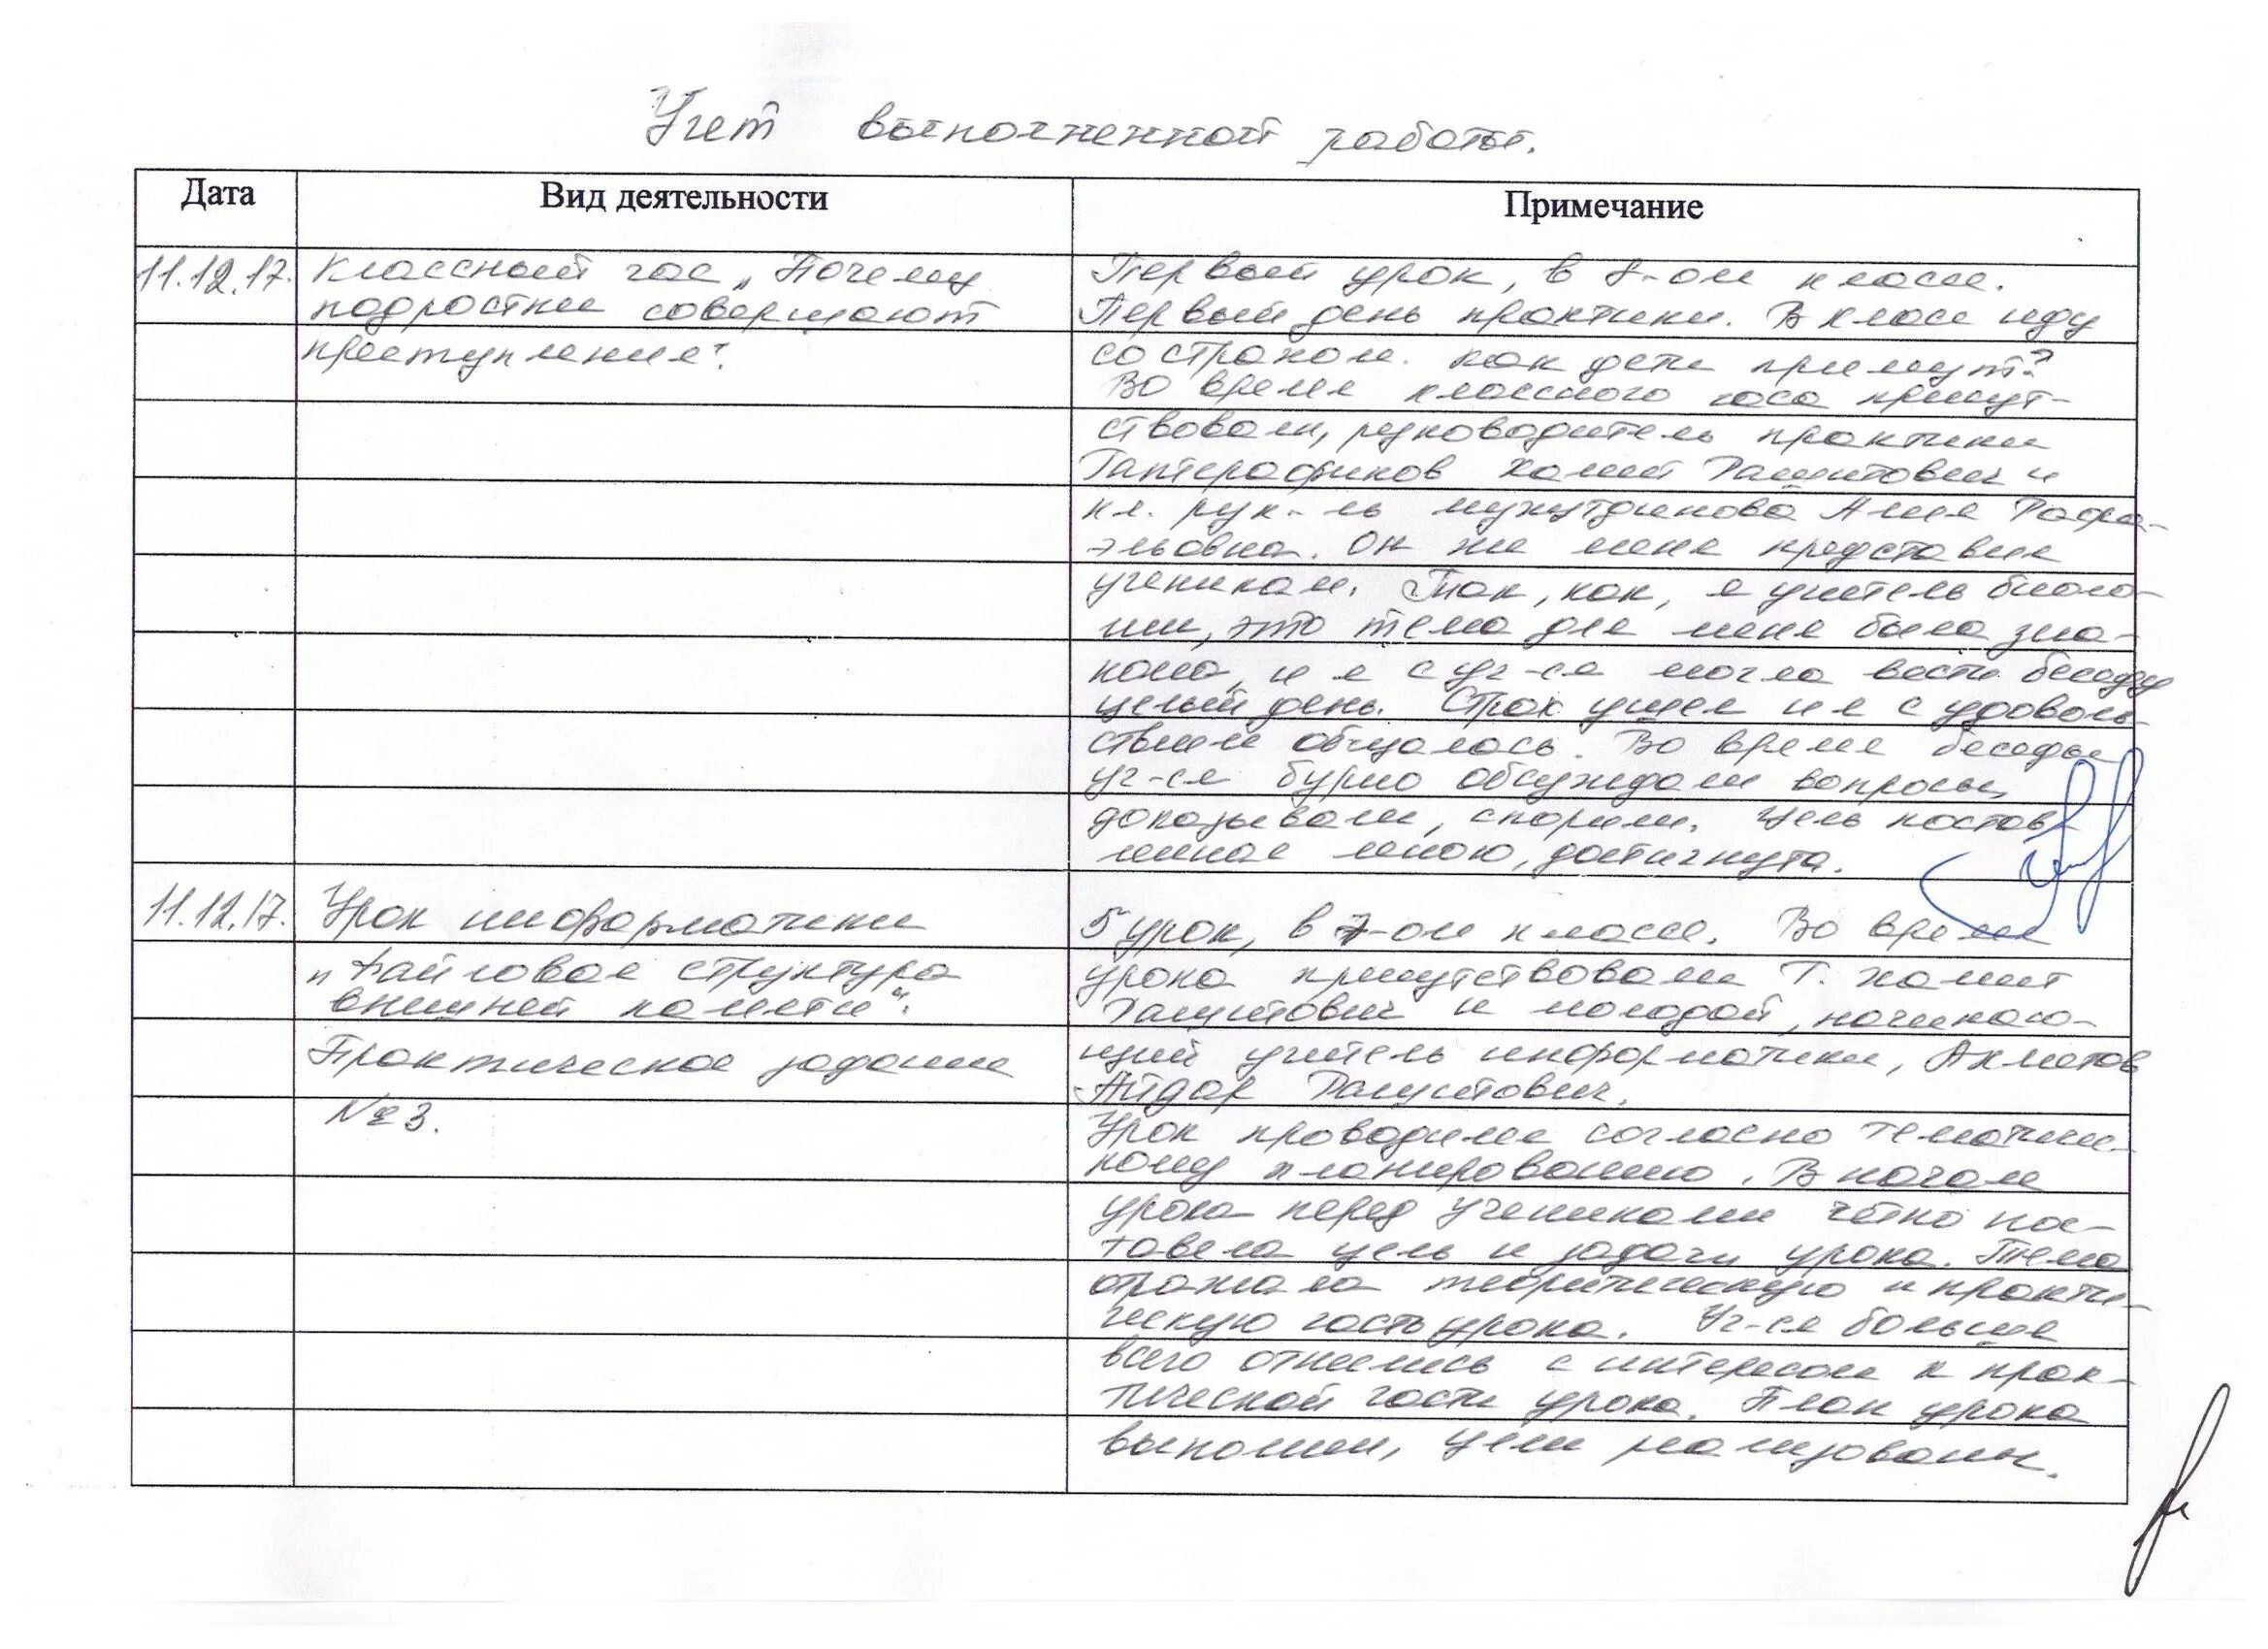 Учет выполненной работы.
Дата Вид деятельности Примечание
11.12.17. Классный час „Почему
подростки совершают
преступления".
Первый урок, в 8-ом классе.
Первый день практики. В класс иду
со страхом. как дети примут?
Во время классного часа присут-
ствовали, руководитель практики
Хамит Рашитович и
кл. рук-ль Мухутдинова Алия Рафа-
эльовна. Он же меня представил
ученикам. Так, как, я учитель биоло-
гии, это тема для меня была зна-
кома, и я с уч-ся могла вести беседу
целый день. Страх ушел и я с удоволь-
ствием общалась. Во время беседы
уч-ся бурно обсуждали вопросы,
доказывали, спорили. Цель постав-
ленная мною, достигнута.
11.12.17. Урок информатики
„Файловая структура
внешней памяти".
Практическое задание
№ 3.
5 урок, в 7-ом классе. Во время
урока присутствовали Г. Хамит
Рашитович и молодой, начинаю-
щий учитель информатики, Ахметов
Айдар Рашитович.
Урок проводила согласно тематичес-
кому планированию. В начале
урока перед учениками чётко пос-
тавела цель и задачи урока. Тема
отражала теоритическую и практи-
ческую часть урока. Уч-ся больше
всего отнеслись с интересом к прак-
тической части урока. План урока
выполнен, цели реализованы.